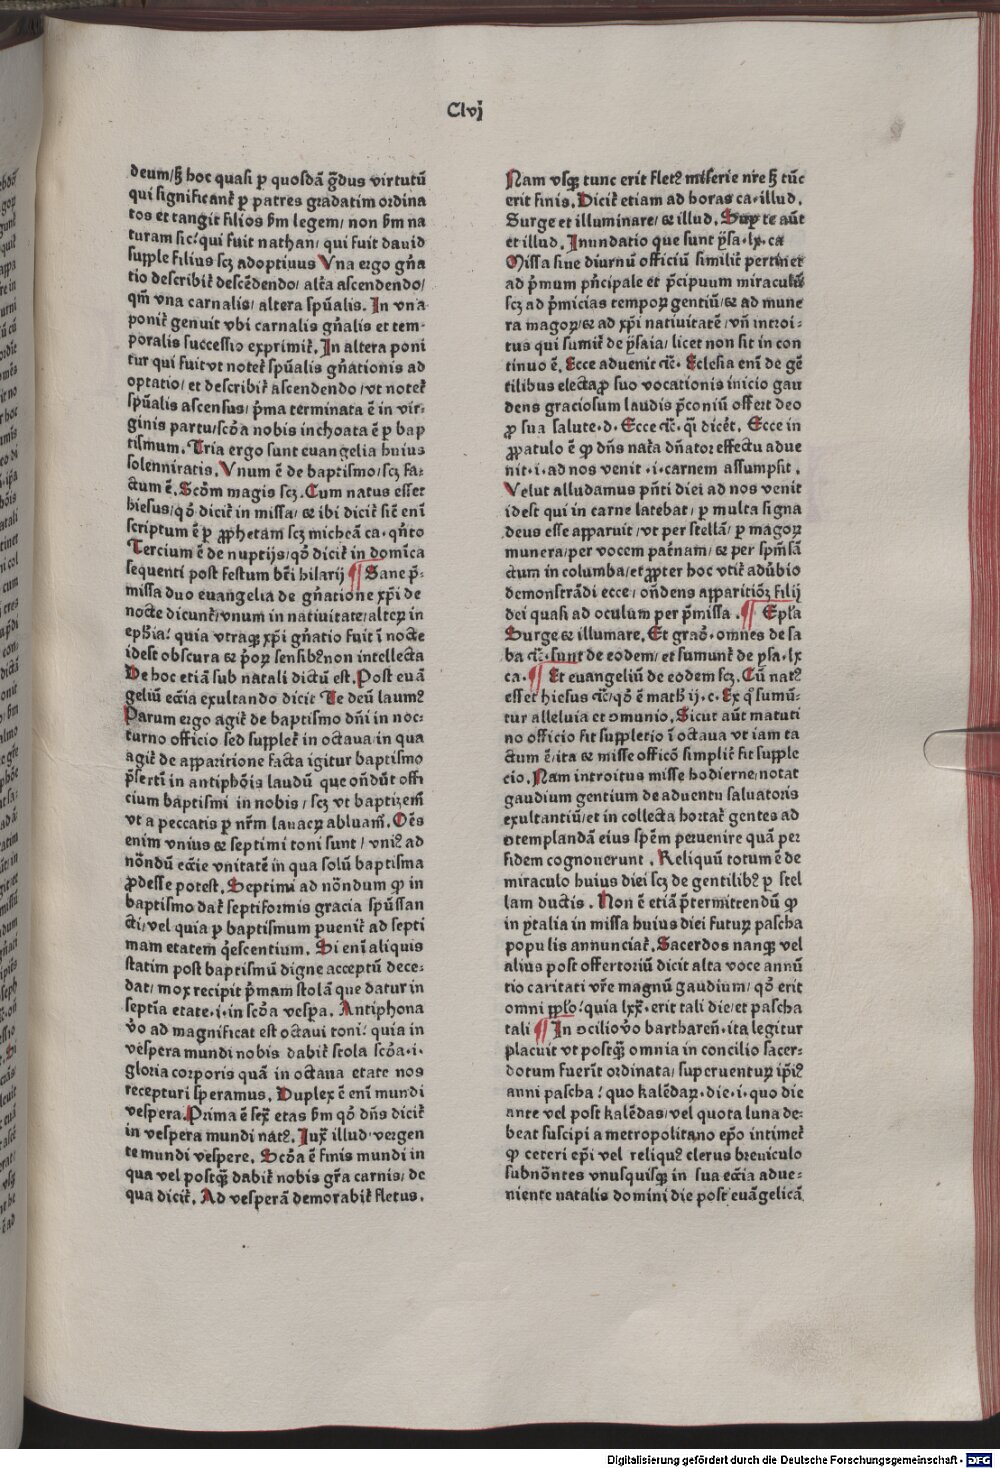 Clvj
deum/ꝫ hoc quasi ꝑ quosdã g̃dus virtutũ
qui significanť ꝑ patres gradatim ordina
tos et tangit filios ẜm legem/ non ẜm na
turam sic? qui fuit nathan/ qui fuit dauid
supple filius scꝫ adoptiuus Vna ergo gña
tio describiť descẽdendo/ alťa ascendendo/
qm̃ vna carnalis/ altera spũalis. In vna
poniť genuit vbi carnalis gñalis et tem⸗
poralis successio exprimiť. In altera poni
tur qui fuit vt noteť spũalis gñationis ad
optatio/ et describiť ascendendo/ vt noteť
spũalis ascensus/ p̃ma terminata ẽ in vir⸗
ginis partu/ scḋa nobis inchoata ẽ ꝑ bap
tismum. Tria ergo sunt euangelia huius
solennitatis. Vnum ẽ de baptismo/ scꝫ fa⸗
ctum ẽ. Scḋm magis scꝫ. Cum natus esset
hiesus/ qḋ diciť in missa/ ⁊ ibi diciť sic̃ enĩ
scriptum ẽ ꝑ ꝓphetam scꝫ micheã ca. qñto
Tercium ẽ de nuptijs/ qḋ diciť in domĩca
sequenti post festum bẽi hilarij ¶ Sane p̃⸗
missa duo euangelia de gñatione xp̃i de
nocte dicunť/ vnum in natiuitate/ alteꝝ in
eph̃ia? quia vtraqꝫ xp̃i gñatio fuit ĩ nocte
idest obscura ⁊ p̃oꝝ sensibꝰ non intellecta
De hoc etiã sub natali dictũ est. Post euã
geliũ ecc̃ia exultando dicit Te deũ laumꝰ
Parum ergo agiť de baptismo dñi in noc⸗
turno officio sed suppleť in octaua/ in qua
agiť de apparitione facta igitur baptismo
p̃sertĩ in antiphõis laudũ que oñdũt offi
cium baptismi in nobis/ scꝫ vt baptizem̃
vt a peccatis ꝑ nr̃m lauacꝝ abluam̃. Oẽs
enim vnius ⁊ septimi toni sunt/ vniꝰ ad
nõndũ ecc̃ie vnitatẽ in qua solũ baptisma
ꝓdesse potest. Septimi ad nõndum ꝙ in
baptismo dať septiformis gracia spũssan
cti/ vel quia ꝑ baptismum ꝑueniť ad septi
mam etatem q̃escentium. Si enĩ aliquis
statim post baptismũ digne acceptũ dece⸗
dat/ mox recipit p̃mam stolã que datur in
septĩa etate. i. in scḋa vesꝑa. Antiphona
v̊o ad magnificat est octaui toni? quia in
vespera mundi nobis dabiť stola scḋa. i.
gloria corporis quã in octaua etate nos
recepturi speramus. Duplex ẽ enĩ mundi
vespera. Prima ẽ sex̃ etas ẜm qḋ dñs diciť
in vespera mundi natꝰ. Iux̃ illud vergen
te mundi vespere. Scḋa ẽ finis mundi in
qua vel postqꝫ dabiť nobis gr̃a carnis/ de
qua diciť. Ad vesperã demorabiť fletus.
Nam vsqꝫ tunc erit fletꝰ miserie nr̃e ꝫ tũc
erit finis. Diciť etiam ad horas ca. illud.
Surge et illuminare/ ⁊ illud. Suꝑ te aũt
et illud. Inundatio que sunt ysa. lx. ca
Missa siue diurnũ officiũ similiť pertinet
ad p̃mum pñcipale et p̃cipuum miraculũ
scꝫ ad p̃micias tempoꝝ gentiũ/ ⁊ ad mune
ra magoꝝ/ ⁊ ad xp̃i natiuitatẽ/ vñ introi⸗
tus qui sumiť de ysaia/ licet non sit in con
tinuo ẽ. Ecce aduenit ⁊c̃. Eclesia enĩ de gẽ
tilibus electa ꝓ suo vocationis inicio gau
dens graciosum laudis p̃coniũ offert deo
ꝓ sua salute. d. Ecce ⁊c̃. q̃i diceť. Ecce in
ꝓpatulo ẽ ꝙ dñs naťa dñator effectu adue
nit. i. ad nos venit. i. carnem assumpsit.
Velut alludamus pñti diei ad nos venit
idest qui in carne latebat/ ꝑ multa signa
deus esse apparuit/ vt per stellã/ ꝑ magoꝝ
munera/ per vocem pať̃nam/ ⁊ per spm̃sã
ctum in columba/ et ꝓpter hoc vtiť adũbio
demonstrãdi ecce/ oñdens apparitiõꝫ filij
dei quasi ad oculum per p̃missa. ¶ Epl̃a
Surge ⁊ illumare. Et graḋ. omnes de sa
ba ⁊c̃. sunt de eodem/ et sumunť de ysa. lx
ca. ¶ Et euangeliũ de eodem scꝫ. Cũ natꝰ
esset hiesus ⁊c̃/ qḋ ẽ math̃ ij. c. Ex q̊ sumũ⸗
tur alleluia et ↄmunio. Sicut aũt matuti
no officio fit suppletio ĩ octaua vt iam ta
ctum ẽ/ ita ⁊ misse officõ simpliť fit supple
cio. Nam introitus misse hodierne/ notat
gaudium gentium de aduentu saluatoris
exultantiũ/ et in collecta hortať gentes ad
ↄtemplandã eius spẽm peruenire quã per
fidem cognouerunt. Reliquũ totum ẽ de
miraculo huius diei scꝫ de gentilibꝰ ꝑ stel
lam ductis. Non ẽ etiã p̃termittendũ ꝙ
in ytalia in missa huius diei futuꝝ pascha
populis annunciať. Sacerdos nanqꝫ vel
alius post offertoriũ dicit alta voce annũ
tio caritati vr̃e magnũ gaudium/ qḋ erit
omni pp̃lo? quia lxx̃. erit tali die/ et pascha
tali ¶ In ↄcilio v̊o bartharen̄. ita legitur
placuit vt postqꝫ omnia in concilio sacer⸗
dotum fuerĩt ordinata/ superuentuꝝ ip̃iꝰ
anni pascha? quo kalẽdaꝝ. die. i. quo die
ante vel post kalẽdas/ vel quota luna de⸗
beat suscipi a metropolitano ep̃o intimeť
ꝙ ceteri ep̃i vel reliquꝰ clerus breuiculo
subnõntes vnusquisqꝫ in sua ecc̃ia adue⸗
niente natalis domini die post euãgelicã
Digitalisierung gefördert durch die Deutsche Forschungsgemeinschaft - DFG